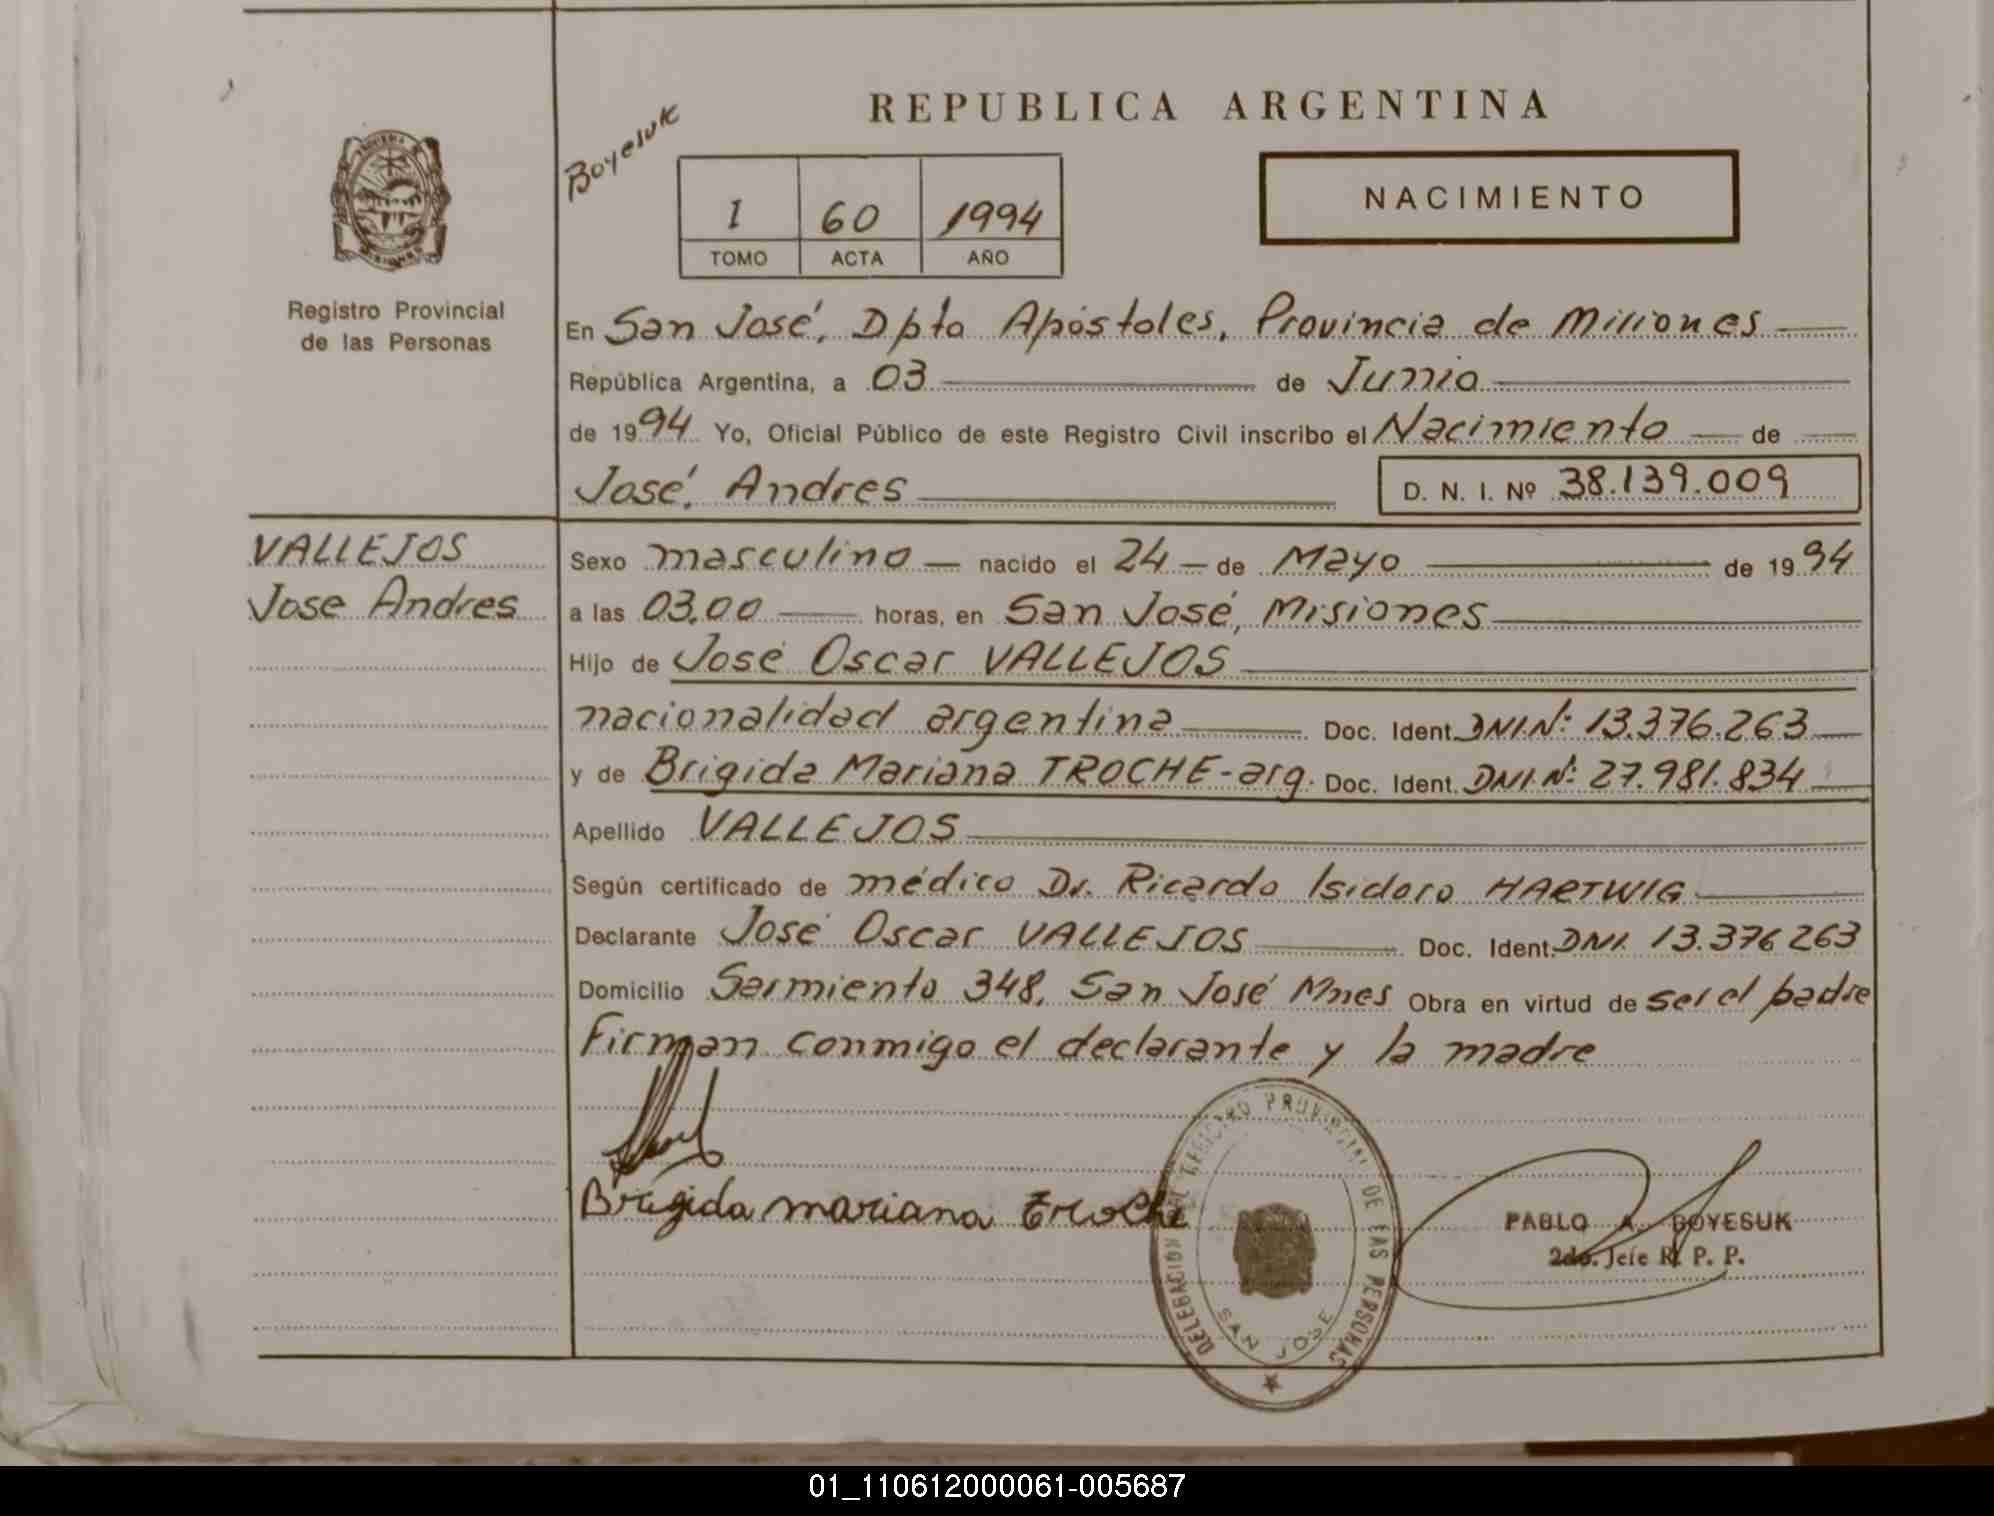 REPUBLICA ARGENTINA
Boyesuk
NACIMIENTO
I 60 1994
TOMO ACTA AÑO
MISIONES
Registro Provincial
de las Personas
En San José, Dpto Apóstoles, Provincia de Misiones
República Argentina, a 03 de Junio
de 1994 Yo, Oficial Público de este Registro Civil inscribo el Nacimiento de
José, Andres D. N. I. Nº 38.139.009
VALLEJOS
Jose Andres
Sexo masculino nacido el 24 de Mayo de 1994
a las 03,00 horas, en San José, Misiones
Hijo de José Oscar VALLEJOS
nacionalidad argentina Doc. Ident. DNI.Nº: 13.376.263
y de Brigida Mariana TROCHE-arg. Doc. Ident. DNI.Nº: 27.981.834
Apellido VALLEJOS
Según certificado de médico Dr. Ricardo Isidoro HARTWIG
Declarante José Oscar VALLEJOS Doc. Ident. DNI. 13.376 263
Domicilio Sarmiento 348, San José Mnes Obra en virtud de ser el padre
Firman conmigo el declarante y la madre
Brigida mariana Troche
DELEGACION REGISTRO PROVINCIAL DE LAS PERSONAS
SAN JOSE
PABLO A. BOYESUK
2do. Jefe R. P. P.
01_110612000061-005687